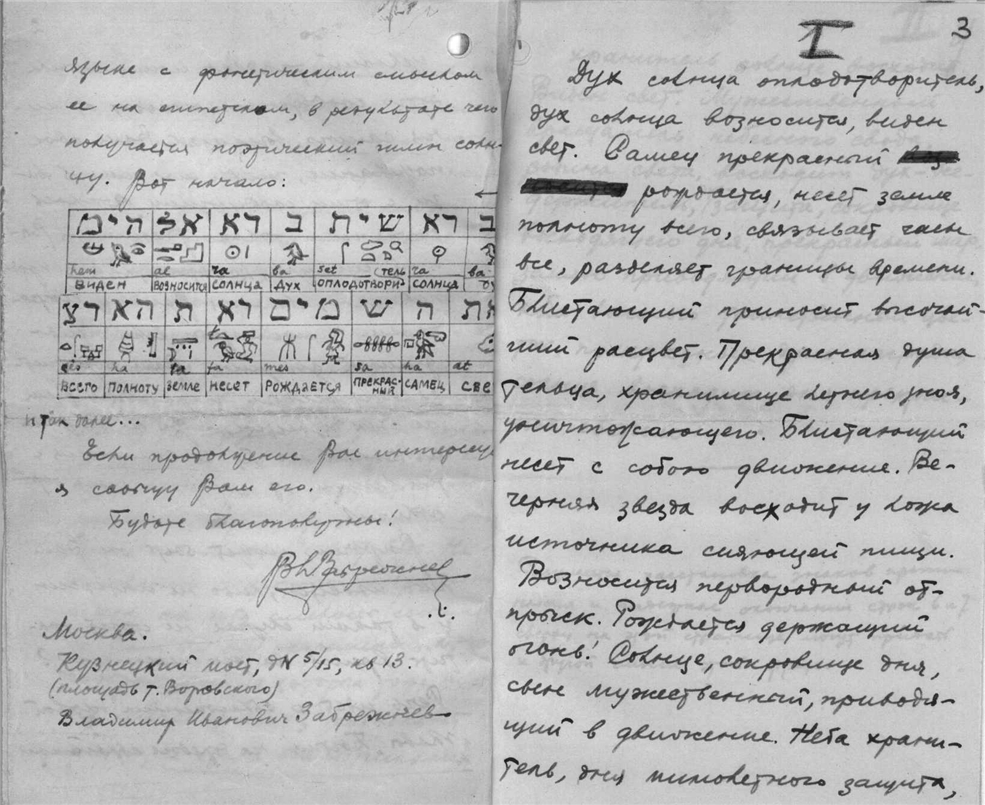 языке с фонетическим смыслом
ее на египетском, в результате чего
получается поэтический гимн солн-
цу. Вот начало:
←
ב רא שית ב רא אל הימ
ham al ra ba set ra ba
виден возносится солнца дух оплодотворитель солнца ду
את ה ש מים רא ת הא רצ
ges ha ta fa mes sa ha at
всего полноту земле несет рождается прекрасный самец све
и так далее...
Если продолжение Вас интересуе
я сообщу Вам его.
Будьте благополучны!
Вл Забрежнев
Москва.
Кузнецкий мост, д№ 5/15, кв 13.
(площадь т. Воровского)
Владимир Иванович Забрежнев
I 3
Дух солнца оплодотворитель,
дух солнца возносится, виден
свет. Самец прекрасный
рождается, несет земле
полноту всего, связывает часы
все, разделяет границы времени.
Блистающий приносит высочай-
ший расцвет. Прекрасная душа
тельца, хранилище летнего зноя,
уничтожающего. Блистающий
несет с собою движение. Ве-
черняя звезда восходит у ложа
источника сияющей пищи.
Возносится первородный от-
прыск. Рождается держащий
огонь! Солнце, сокровище дня,
сын мужественный, приводя-
щий в движение. Неба храни-
тель, дня мимолетного защита,